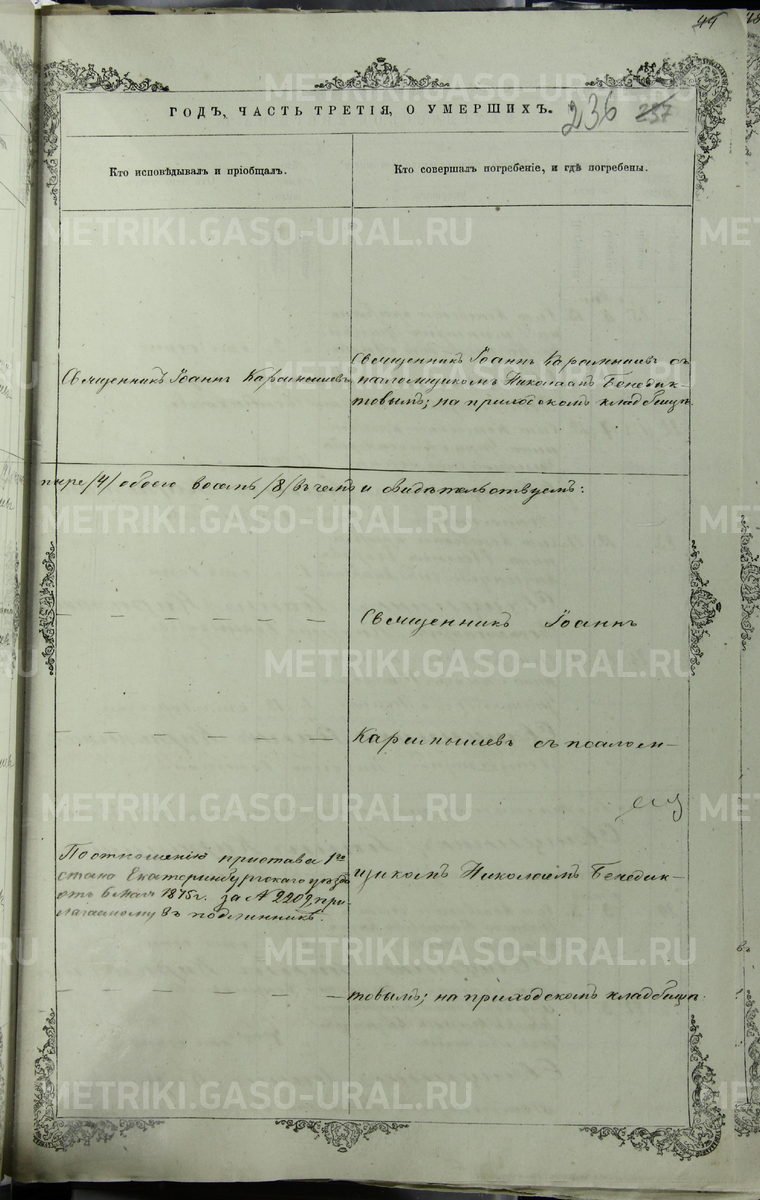 ГОДЪ, ЧАСТЬ ТРЕТІЯ, О УМЕРШИХЪ.
236
237
Кто исповѣдывалъ и пріобщалъ.
Кто совершалъ погребеніе, и гдѣ погребены.
Священникъ Іоаннъ Карамышевъ
Священникъ Іоаннъ Карамышевъ съ
псаломщикомъ Николаемъ Бенедик-
товымъ; на приходскомъ кладбищѣ.
тыре /4/ обоего восемь /8/ въ чемъ и свидѣтельствуемъ:
Священникъ Іоаннъ
Карамышевъ съ псалом-
По отношенію пристава 1го
стана Екатеринбургскаго уѣзда
отъ 6 мая 1875 г. за № 2209, при-
лагаемому въ подлинникѣ.
щикомъ Николаемъ Бенедик-
товымъ; на приходскомъ кладбищѣ.
METRIKI.GASO-URAL.RU